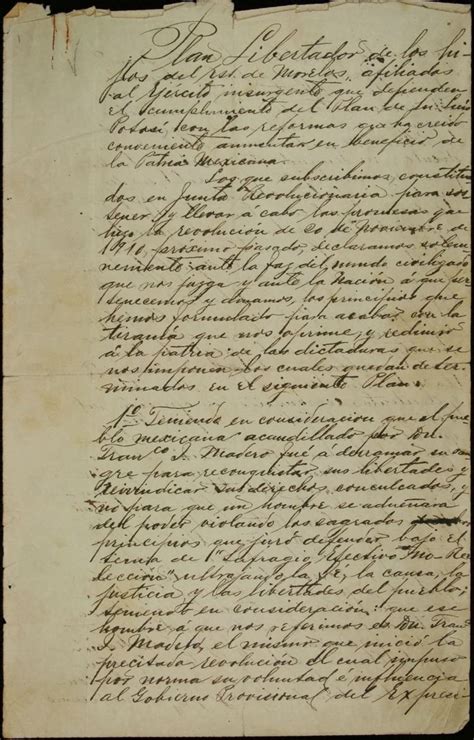 Plan Libertador de los hi
jos del Est. de Morelos, afiliados
al Ejército insurgente que defienden
el cumplimiento del Plan de San Luis
Potosí, con las reformas que ha creido
conveniente aumentar en beneficio de
la Patria Mexicana.
Los que subscribimos, constitui
dos en Junta Revolucionaria para sos
tener y llevar á cabo las promesas que
hizo la revolucion de 20 de Noviembre de
1910, proximo pasado, declaramos solem
nemente ante la faz del mundo civilizado
que nos juzga y ante la Nación á que per
tenecemos y amamos, los principios que
hemos formulado para acabar con la
tirania que nos oprime y redimir
á la patria de las dictaduras que se
nos imponen los cuales quedan deter
minados en el siguiente Plan:
1º Teniendo en consideracion que el pue
blo mexicano acaudillado por Dn.
Franco. I. Madero fué á derramar su san
gre para reconquistar sus libertades y
reivindicar sus derechos conculcados, y
no para que un hombre se adueñara
del poder violando los sagrados
principios que juró defender bajo el
lema de "Sufragio Efectivo No Re
elección" ultrajando la fé, la causa, la
justicia y las libertades del pueblo;
teniendo en consideracion: que ese
hombre á que nos referimos es Dn. Franco.
I. Madero, el mismo que inició la
precitada revolucion el cual impuso
por norma su voluntad e influencia
al Gobierno Provisional del Ex presi-